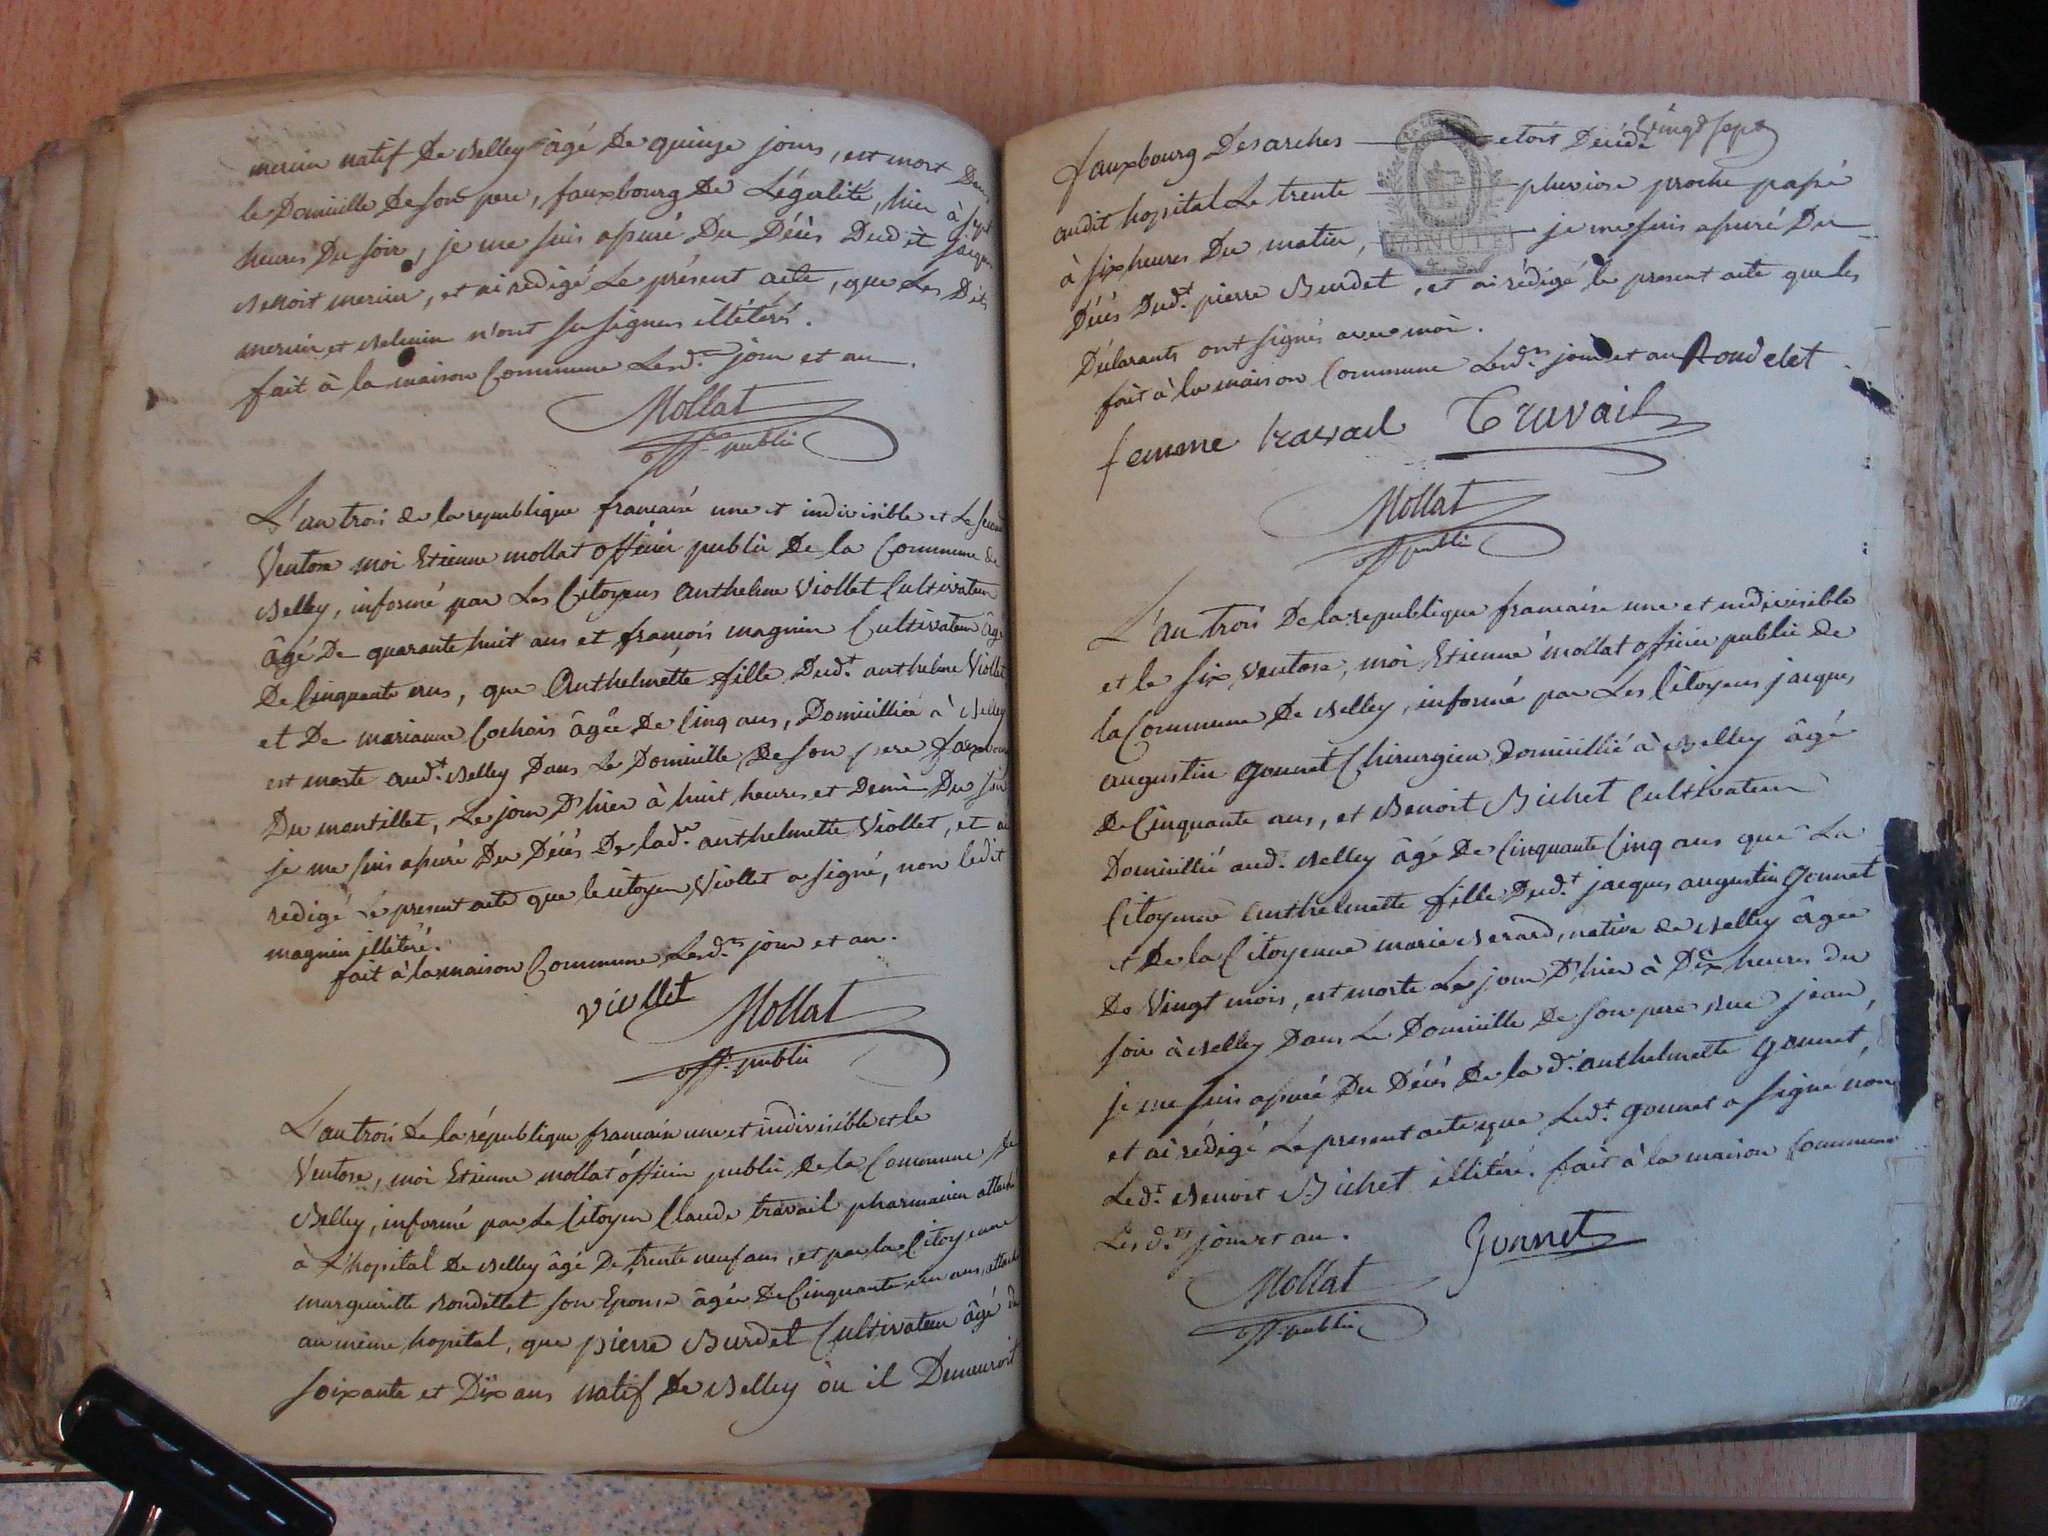 mercier natif de Belley âgé de quinze jours, est mort Dans
le Domicille de son pere, fauxbourg de Légalité, hier à sept
heures du soir, je me suis assuré Du Décès Dudit jacques
Benoit mercier, et ai redigé Le présent acte, que Les Dits
mercier et n'ont su signer illétérés.
fait à la maison Commune Lesd.rs jour et an
Mollat
off.er public
L'an trois de la republique francaise une et indivisible et Le second
Ventose moi Etienne mollat officier public De la Commune de
Belley, informé par Les Citoyens Anthelme Viollet Cultivateur
âgé De quarante huit ans et francois magnin Cultivateur âgé
De Cinquante ans, que Anthelmette fille Dud.t anthelme Viollet
et De marianne Cochois âgée De Cinq ans, Domicilliée à Belley
est morte aud.t Belley Dans Le Domicille De son pere fauxbourg
Du montillet, Le jour D'hier à huit heures et Demie Du soir
je me suis assuré Du Décès De lad.e anthelmette Viollet, et ai
redigé Le present acte que le citoyen Viollet a signé, non ledit
magnin illitéré.
fait à la maison Commune Lesd.rs jour et an.
viollet
Mollat
off.er public
L'an trois de la république francaise une et indivisible et le
Ventose, moi Etienne mollat officier public de la Commune de
Belley, informé par Le Citoyen Claude travail pharmacien attaché
à L'hopital de Belley âgé De trente neuf ans, et par la Citoyenne
margueritte Rondettet son Epouse âgée De Cinquante ans, attachée
au même hopital, que pierre Burdet Cultivateur âgé de
soixante et Dix ans natif De Belley où il Demeuroit
fauxbourg Des arches etoit Décédé vingt sept
audit hopital Le trente pluviose proche passé
à six heures Du matin, je me suis assuré Du
MINUTE
4. S.
Décès Dud.t pierre Burdet, et ai rédigé le present acte que les
Déclarants ont signés avec moi.
fait à la maison Commune Lesd.rs jour et an Rondelet
femme travail Travail
Mollat
off public
L'an trois De la republique francaise une et indivisible
et le six ventose, moi Etienne mollat officier public de
la Commune De Belley, informé par Les Citoyens jacques
augustin gonnet Chirurgien domicillié à Belley âgé
De Cinquante ans, et Benoit Bichet Cultivateur
Domicillié aud.t Belley âgé De Cinquante Cinq ans que La
Citoyenne Anthelmette fille Dud.t jacques augustin Gonnet
et De la Citoyenne marie Berard, native de Belley âgée
De Vingt mois, est morte Le jour D'hier à Dix heures du
soir à Belley Dans Le Domicille De son pere Rue jean,
je me suis assuré Du Décès De la d.e anthelmette gonnet,
et ai rédigé Le present acte que Led.t gonnet a signé non
Led.t Benoit Bichet illitéré. fait à la maison Commune
Lesd.rs jour et an.
Gonnet
Mollat
off. public